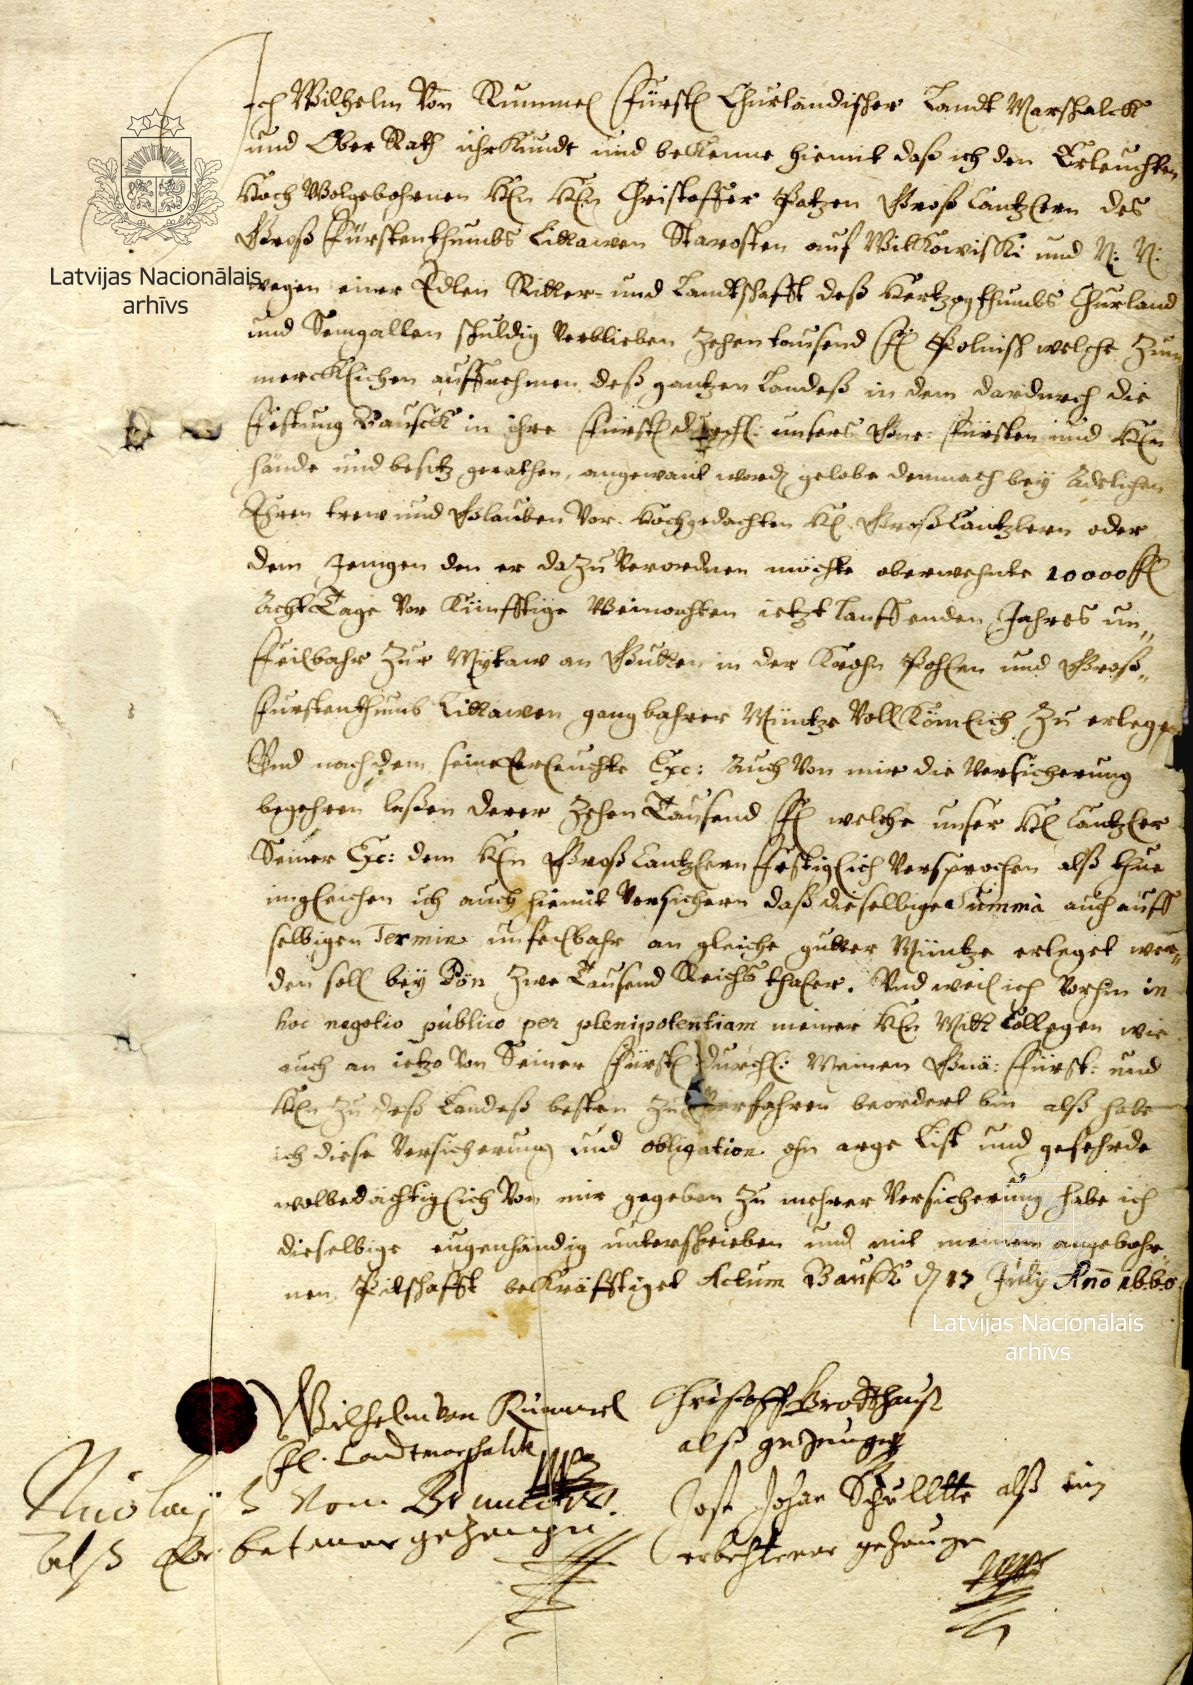 Ich Wilhelm Von Rummel Fürstl Churländischer Landt Marschalck
und Ober Rath uhrkunde und bekenne hiemit daß ich den Erleuchten
Hoch Wolgebohrnen HEn HEn Christoffer Patzen Groß Cantzlern des
Groß Fürstenthumbs Littawen Starosten auf Wilkowiski und N: N:
Latvijas Nacionālais
arhīvs
wegen einer Edlen Ritter- und Landtschafft deß Hertzogthumbs Churland
und Semgallen schuldig verblieben Zehen tausend fl Polnisch welche Zum
mercklichen auffnehmen deß gantzen Landeß in dem dardurch die
Festung Bausck in ihre Fürstl durchl: unsers Gne: Fürsten und HEn
hände und besitz gerathen, angewant word, gelobe demnach bey Adelichen
Ehren trew und Glauben Vor. Hochgedachten HE. Groß Cantzlern oder
dem Jenigen den er dazu Verordnen möchte oberwehnte 10000 fl
Acht Tage Vor Künfftige Weinachten ietzt lauffenden Jahres un„
feilbahr Zur Mytaw an Gutter in der Krohn Pohlen und Groß„
furstenthumb Littawen gangbahrer Müntze Vollkömlich Zu erlegen
Vnd nach dem seine Erleuchte Exc: Auch Von mir die Versicherung
begehren laßen derer Zehen Tausend fl welche unser HE Cantzler
Seiner Exc: dem HEn Groß Cantzlern festiglich Versprochen alß thue
imgleichen ich auch hiemit Versichern daß dieselbige Summa auch auff
selbigen Termin unfeilbahr an gleiche gutter Müntze erleget wer„
den soll bey Pön Zwe Tausend Reichsthaler. Vnd weil ich Vorhin in
hoc negotio publico per plenipotentiam meiner HEn Mitt Collegen wie
auch an ietzo Von Seiner Fürstl Durchl: Meinen Gnä: Fürst: und
HEn Zu deß Landeß besten Zu Verfahren beordert bin alß habe
ich diese Versicherung und obligation ohn arge List und gefehrde
wolbedächtiglich Von mir gegeben Zu mehrer Versicherung habe ich
dieselbige eugenhändig unterschrieben und mit meinem angebohr„
nen Pitschafft bekräfftiget Actum Bausk d 17 July Ano 1660
Latvijas Nacionālais
arhīvs
Wilhelm von Rummel
Fl. Landtmarschalck
Christoff Brotthauß
alß gezeuge
Nicolay von
alß Erbetener gezeuge
Jost Johan Schultte alß ein
erbehtener gezeuge